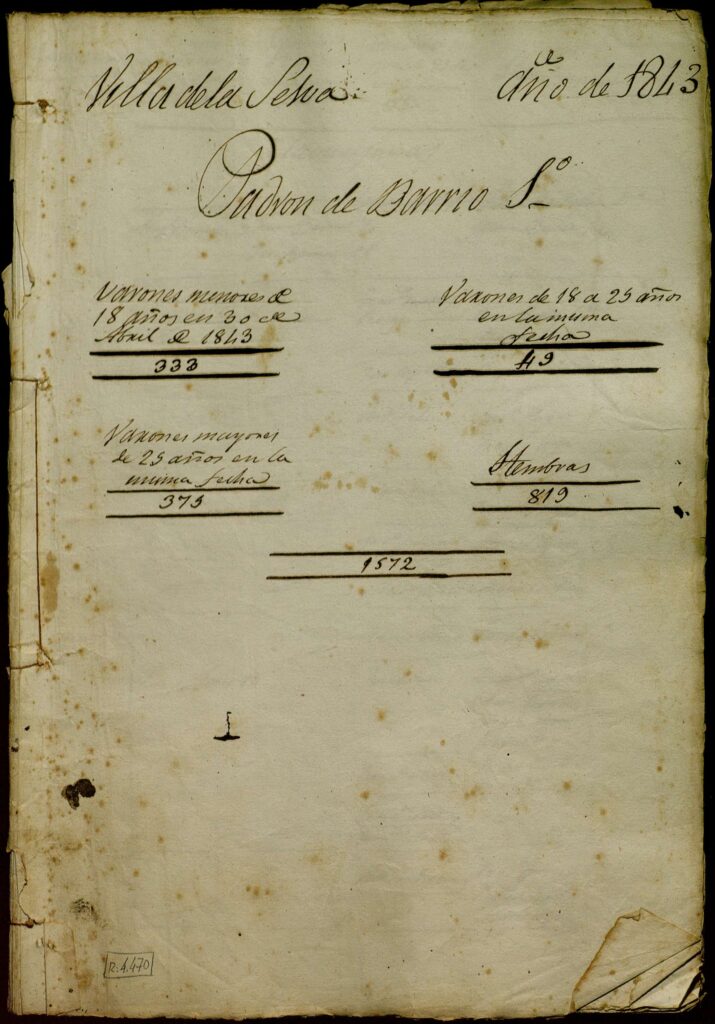 Villa de la Selva
Año de 1843
Padron de Barrio 1º
Varones menores de
18 años en 30 de
Abril de 1843
333
Varones de 18 a 25 años
en la misma
fecha
45
Varones mayores
de 25 años en la
misma fecha
375
Hembras
819
1572
1
R:4.470